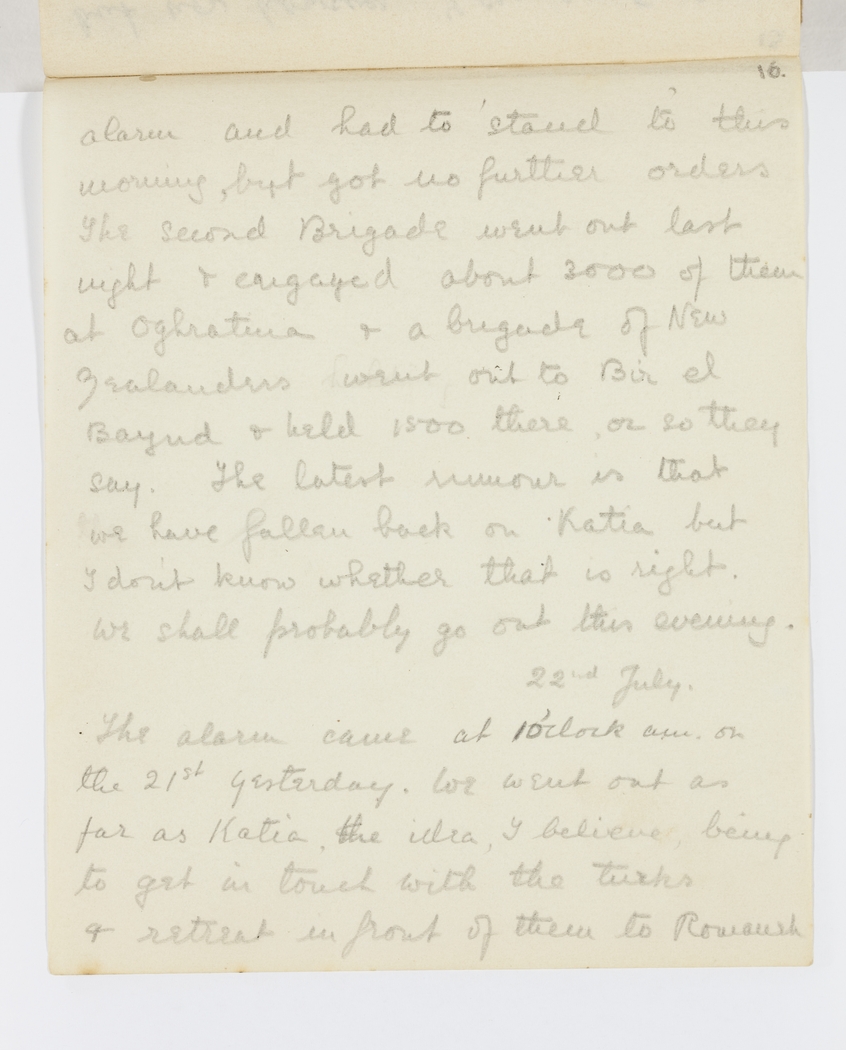 16.
alarm and had to 'stand to' this
morning, but got no further orders
The Second Brigade went out last
night & engaged about 3000 of them
at Oghratina & a brigade of New
Zealanders went out to Bir el
Bayud & held 1500 there, or so they
say. The latest rumour is that
we have fallen back on Katia but
I don't know whether that is right.
We shall probably go out this evening.
22nd July.
The alarm came at 1 o'clock am. on
the 21st yesterday. We went out as
far as Katia, the idea, I believe, being
to get in touch with the turks
& retreat in front of them to Romanih